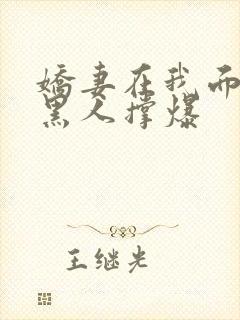 娇妻在我面
黑人撑爆
王继光